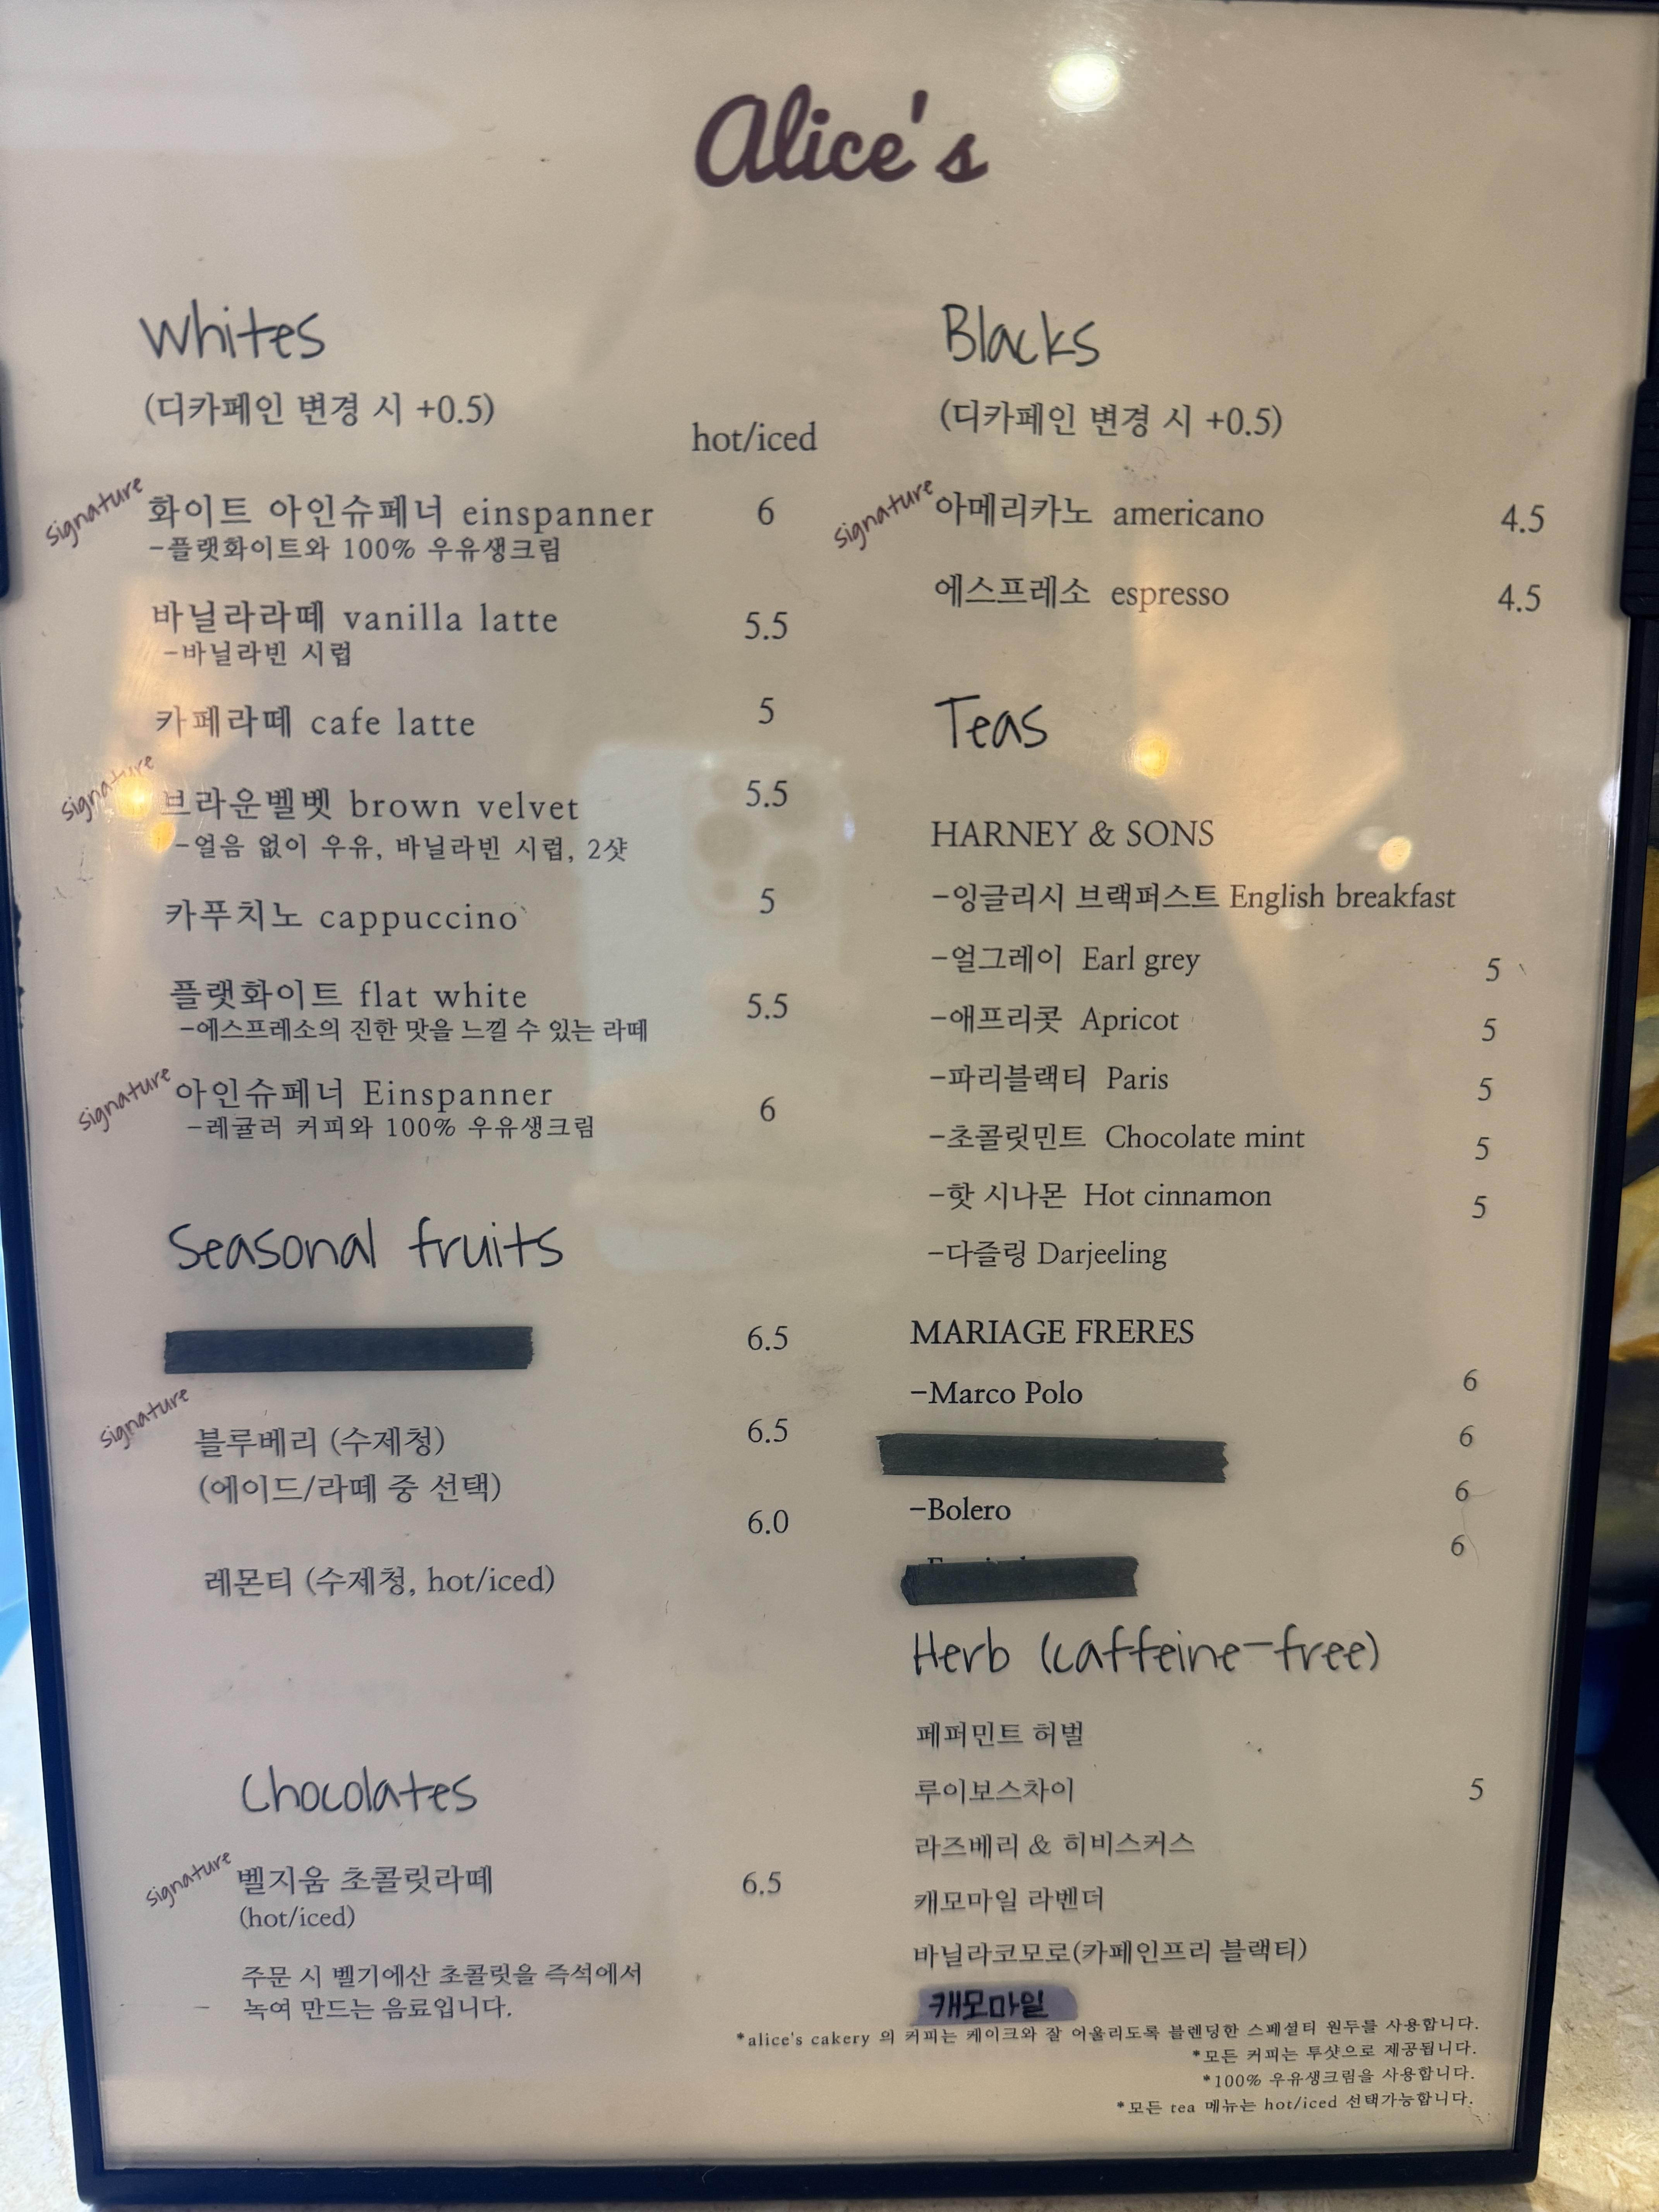 Alice's
Whites
(디카페인 변경 시 +0.5)
hot/iced
signature
화이트 아인슈페너 einspanner 6
-플랫화이트와 100% 우유생크림
바닐라라떼 vanilla latte 5.5
-바닐라빈 시럽
카페라떼 cafe latte 5
signature
브라운벨벳 brown velvet 5.5
-얼음 없이 우유, 바닐라빈 시럽, 2샷
카푸치노 cappuccino 5
플랫화이트 flat white 5.5
-에스프레소의 진한 맛을 느낄 수 있는 라떼
signature
아인슈페너 Einspanner 6
-레귤러 커피와 100% 우유생크림
Seasonal fruits
6.5
signature
블루베리 (수제청) 6.5
(에이드/라떼 중 선택)
6.0
레몬티 (수제청, hot/iced)
Chocolates
signature
벨지움 초콜릿라떼 6.5
(hot/iced)
주문 시 벨기에산 초콜릿을 즉석에서
녹여 만드는 음료입니다.
Blacks
(디카페인 변경 시 +0.5)
signature
아메리카노 americano 4.5
에스프레소 espresso 4.5
Teas
HARNEY & SONS
-잉글리시 브랙퍼스트 English breakfast
-얼그레이 Earl grey 5
-애프리콧 Apricot 5
-파리블랙티 Paris 5
-초콜릿민트 Chocolate mint 5
-핫 시나몬 Hot cinnamon 5
-다즐링 Darjeeling
MARIAGE FRERES
-Marco Polo 6
6
-Bolero 6
6
Herb (caffeine-free)
페퍼민트 허벌
루이보스차이 5
라즈베리 & 히비스커스
캐모마일 라벤더
바닐라코모로(카페인프리 블랙티)
캐모마일
*alice's cakery 의 커피는 케이크와 잘 어울리도록 블렌딩한 스페셜티 원두를 사용합니다.
*모든 커피는 투샷으로 제공됩니다.
*100% 우유생크림을 사용합니다.
*모든 tea 메뉴는 hot/iced 선택가능합니다.